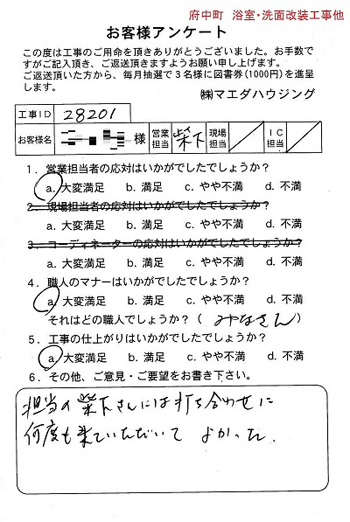 府中町 浴室・洗面改装工事他
お客様アンケート
この度は工事のご用命を頂きありがとうございました。お手数で
すがご記入頂き、ご返送頂きますようお願い申し上げます。
ご返送頂いた方から、毎月抽選で3名様に図書券(1000円)を進呈
します。
㈱マエダハウジング
工事ID 28201
お客様名 様 営業担当 柴下 現場担当 IC担当
1. 営業担当者の応対はいかがでしたでしょうか?
a. 大変満足 b. 満足 c. やや不満 d. 不満
2. 現場担当者の応対はいかがでしたでしょうか?
a. 大変満足 b. 満足 c. やや不満 d. 不満
3. コーディネーターの応対はいかがでしたでしょうか?
a. 大変満足 b. 満足 c. やや不満 d. 不満
4. 職人のマナーはいかがでしたでしょうか?
a. 大変満足 b. 満足 c. やや不満 d. 不満
それはどの職人でしょうか?( みなさん )
5. 工事の仕上がりはいかがでしたでしょうか?
a. 大変満足 b. 満足 c. やや不満 d. 不満
6. その他、ご意見・ご要望をお書き下さい。
担当の柴下さんには打ち合わせに
何度も来ていただいて よかった。